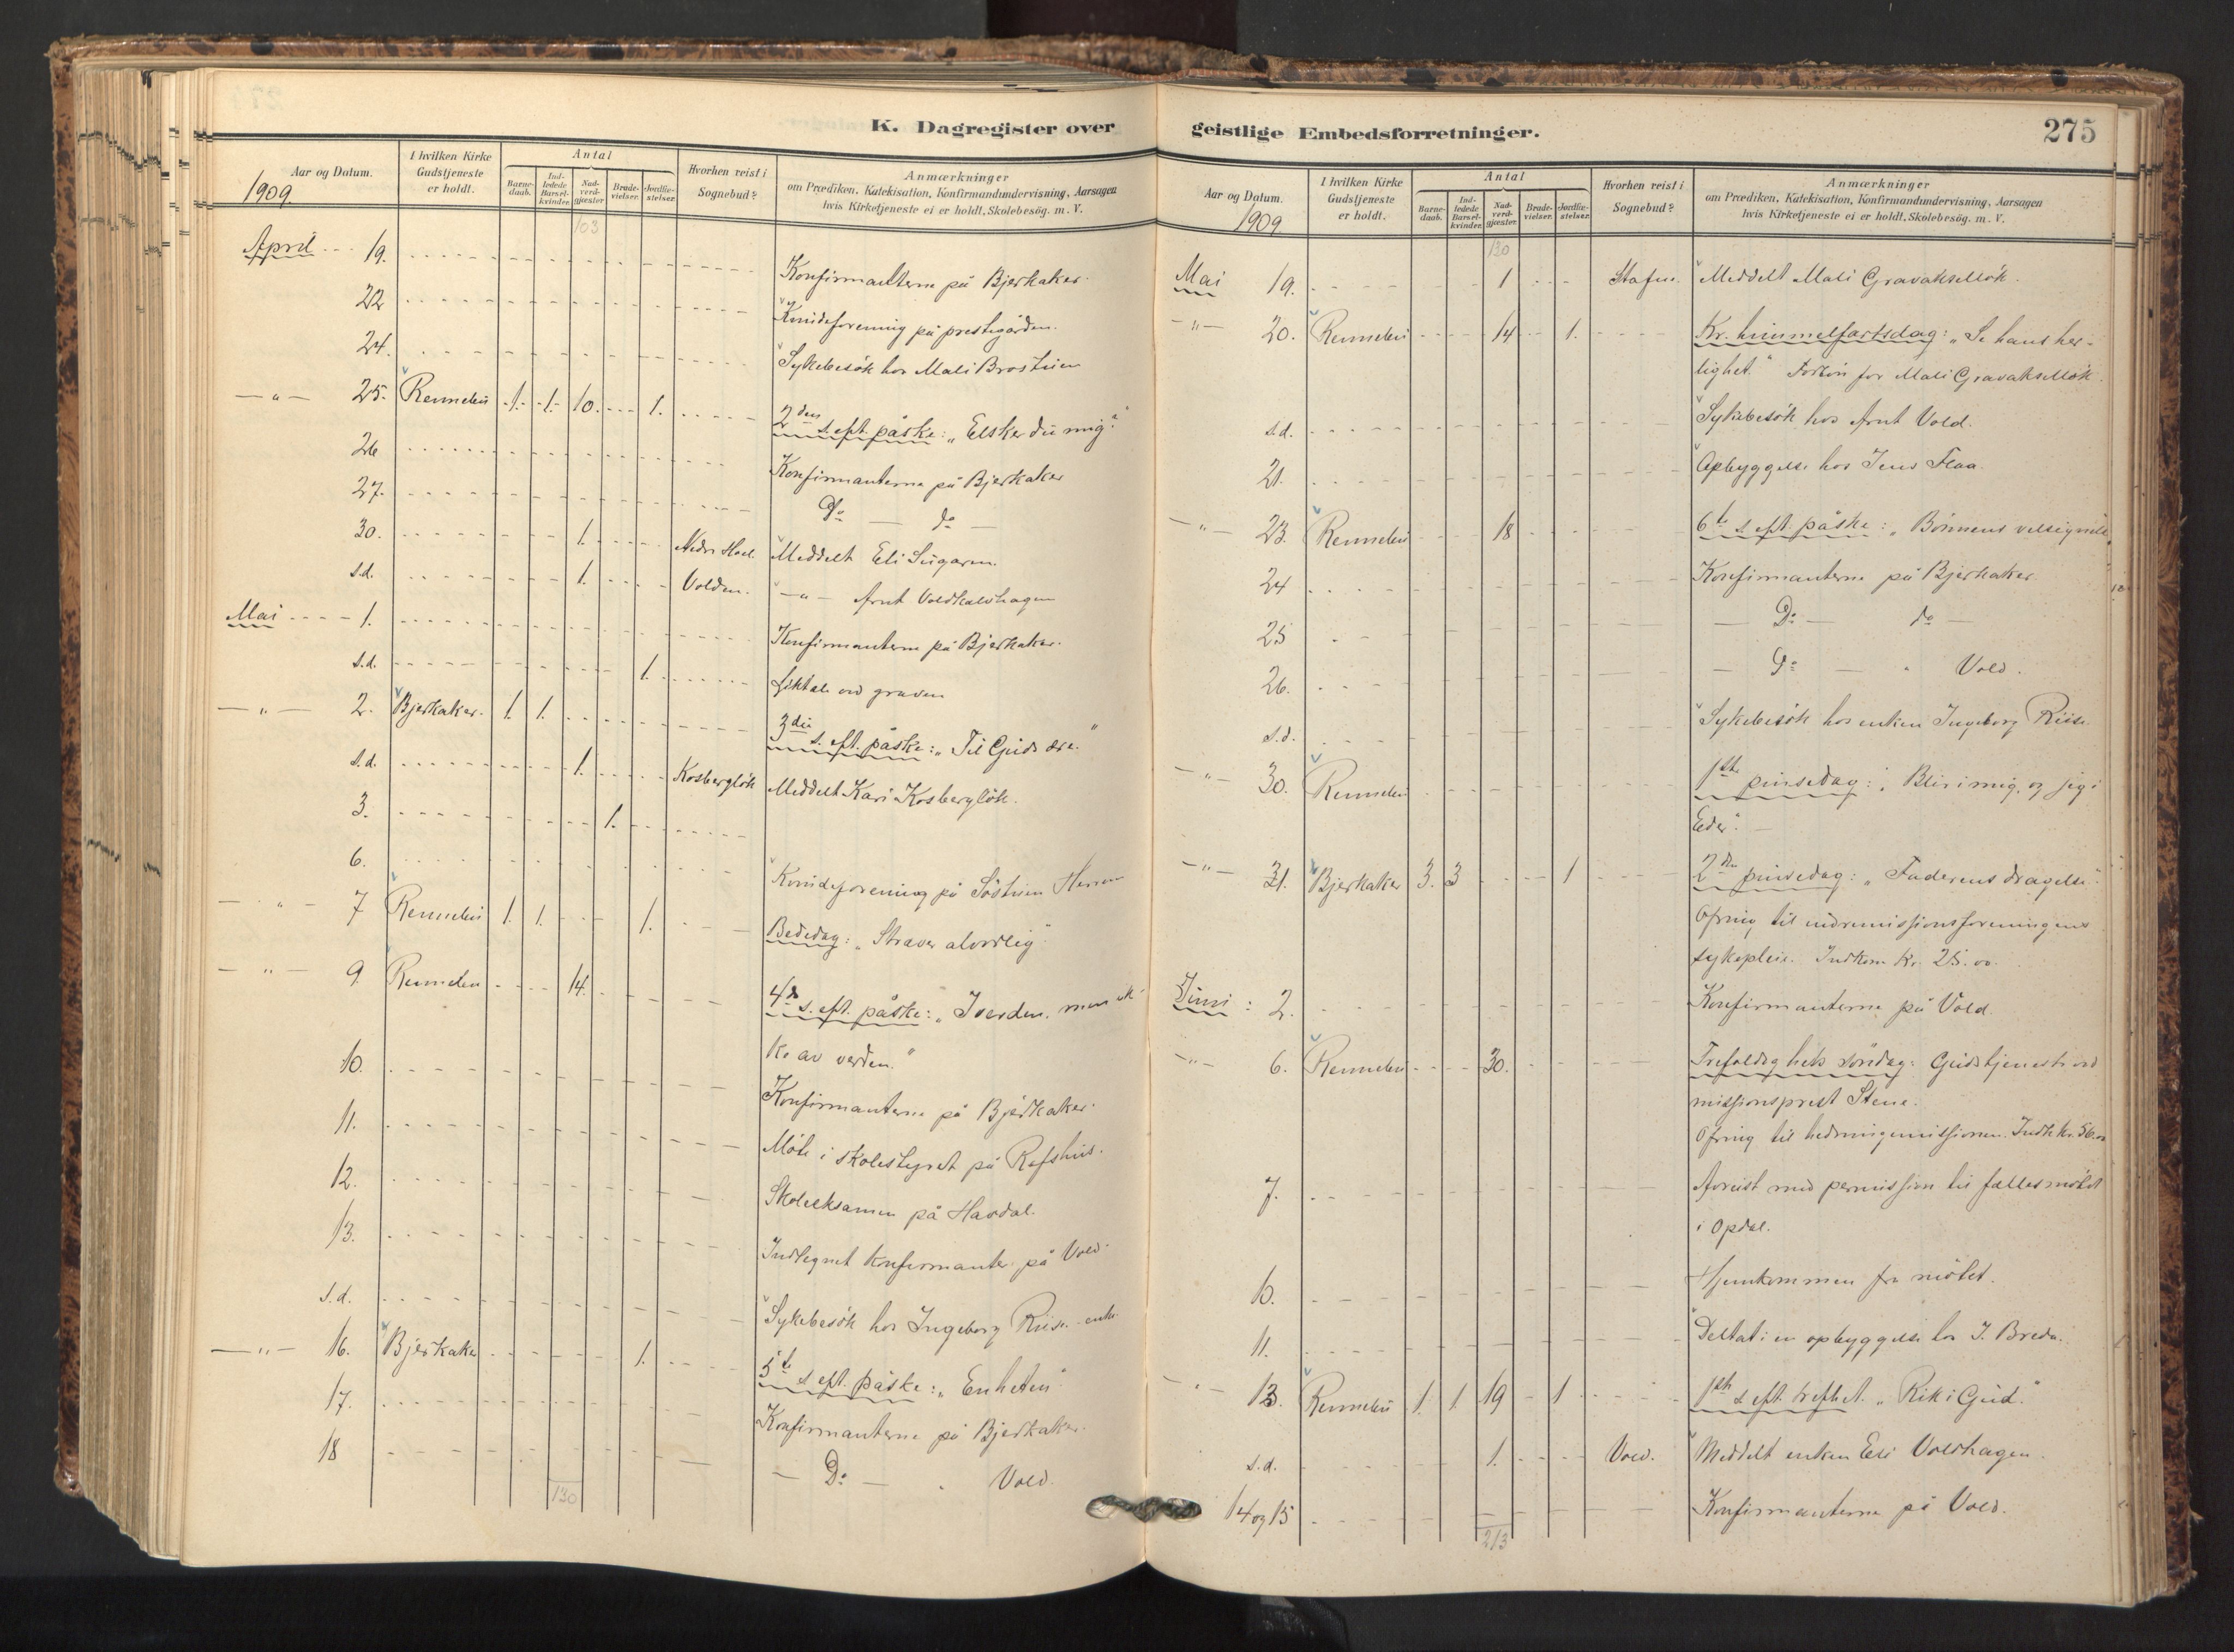 K. Dagregister over
Aar og Datum.
1909.
I hvilken Kirke Gudstjeneste er holdt.
Antal
Barne-daab.
Ind-ledede Barsel-kvinder.
Nad-verd-gjæster
Brude-vielser.
Jordfæ-stelser.
Hvorhen reist i Sognebud?
Anmærkninger
om Prædiken, Katekisation, Konfirmandundervisning, Aarsagen
hvis Kirketjeneste ei er holdt, Skolebesög. m. V.
103
April 19. Konfirmanterne på Bjerkaker.
22 Kvindeforening på prestegården.
24. Sykebesök hos Mali
— " — 25. Rennebu 1. 1. 10. 1. 2den s. eft. påske: „Elsker du mig?"
26 Konfirmanterne på Bjerkaker
27. Do — do —
30. 1. Nedre Hoel. Meddelt Eli
s.d. 1. Volden. — " — Arnt Voldhalshagen
Mai 1. Konfirmanterne på Bjerkaker.
s.d. 1. Liktale ved graven
— " — 2. Bjerkaker. 1. 1. 3die s. eft. påske: „Til Guds ære."
s.d. 1. Kosberglök Meddelt Kari Kosberglök.
3. 1.
6. Kvindeforening på
— " — 7 Rennebu 1. 1. 1. Bededag: „Straver alvorlig"
— " — 9. Rennebu 14. 4de s. eft. påske: „I verden, men ik-
ke av verden."
10. Konfirmanterne på Bjerkaker.
11. Möte i skolestyret på Rafshus.
12. Skoleeksamen på Havdal.
13. Indtegnet konfirmanter på Vold.
s.d. Sykebesök hos Ingeborg Riise enke
— " — 16. Bjerkaker 1. 5te s. eft. påske: „Enheten"
17. Konfirmanterne på Bjerkaker.
18 — Do — " Vold.
130
geistlige Embedsforretninger.
275
Aar og Datum.
1909
I hvilken Kirke Gudstjeneste er holdt.
Antal
Barne-daab.
Ind-ledede Barsel-kvinder.
Nad-verd-gjæster.
Brude-vielser.
Jordfæ-stelser.
Hvorhen reist i Sognebud?
Anmærkninger
om Prædiken, Katekisation, Konfirmandundervisning, Aarsagen
hvis Kirketjeneste ei er holdt, Skolebesög. m. V.
130
Mai 19. 1 Meddelt Mali Gravaksellök.
— " — 20. Rennebu 14 1. Kr. himmelfartsdag: „Se hans her-
lighet." Forbön for Mali Gravaksellök.
s.d. Sykebesök hos Arnt Vold.
21. Opbyggelse hos Jens Flaa.
— " — 23. Rennebu 18 6te s. eft. påske: „Bönnens velsignelse"
24 Konfirmanterne på Bjerkaker.
25 — Do — do —
26. — Do — " Vold.
s.d. Sykebesök hos enken Ingeborg Riise
— " — 30. Rennebu 1ste pinsedag: „Bliv i mig, og jeg i
Eder". —
— " — 31. Bjerkaker 3. 3 1 2den pinsedag: „Faderens dragelse".
Ofring til indremissionsforeningens
sykepleie. Indkom kr. 25.00.
Juni: 2. Konfirmanterne på Vold.
— " — 6. Rennebu 30. Trefoldighets söndag: Gudstjeneste ved
missionsprest Stene.
Ofring til hedningemissionen. Indk. kr. 56.00
7. Avreist med permission til fællesmötet
i Opdal.
10. Hjemkommen fra mötet.
11. Deltat i en opbyggelse hos J. Breda.
— " — 13. Rennebu 1. 1 19 1 1ste s. eft. trefhet. „Rik i Gud."
s.d. 1. Vold. Meddelt enken Eli Voldhagen.
14 og 15 Konfirmanterne på Vold.
213